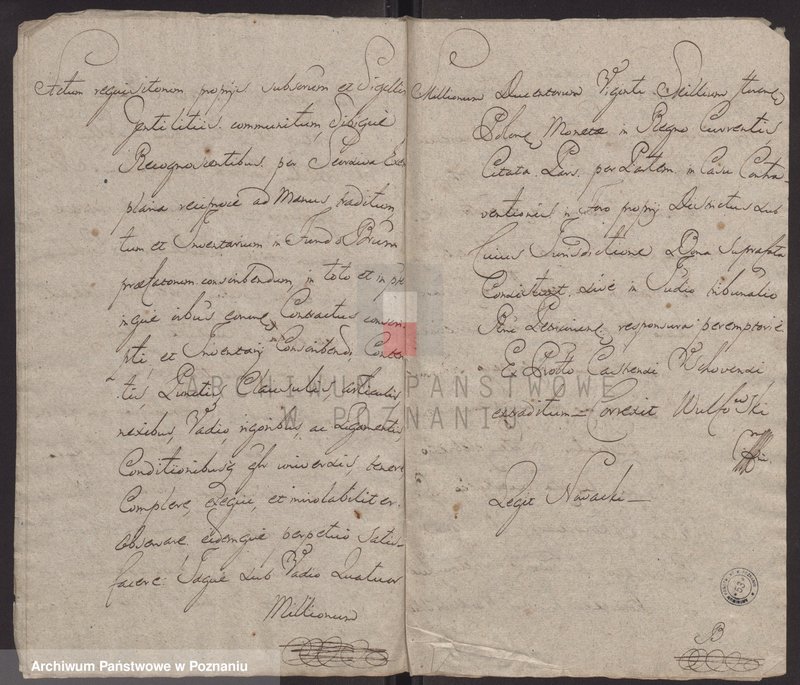 Actum requisitorum proprijs subserum et Sigillis
Gentilitiis communitum, Sibique
Recognoscentibus per Seorsiva Exem
plaria reciproce ad Manus traditum,
tum et Inventarium in Fundo Bonorum
præfatorum conscribendum in toto et in
inque omnibus Contractus conscri
pti et Inventarij conscribendi Conten
tis, Punctis, Clausulis, Articulis
nexibus, Vadio, rigoribus, ac Ligamentis
Conditionibusq universis, tenere
Complere, exequi, et inviolabiliter
observare, eidemque perpetuo satis
facere. Idque sub Vadio Quatuor
Millionum
Millionum Ducentorum Viginti Millium floren
Polone Monete in Regno Currentis
Citata Pars per Partem in Casu Contra
ventionis in Foro proprij Districtus sub
cuius Jurisdictione Bona suprafata
Consistent, sive in Judio tribunalio
Rni Lesniunij responsura peremptorie
Ex Protto Castrensi Wschovensi
expaditum Correxit Wulfowski
mp
Legit Nowacki
B
ARCHIWUM PAŃSTWOWE
W POZNANIU
53
Archiwum Państwowe w Poznaniu